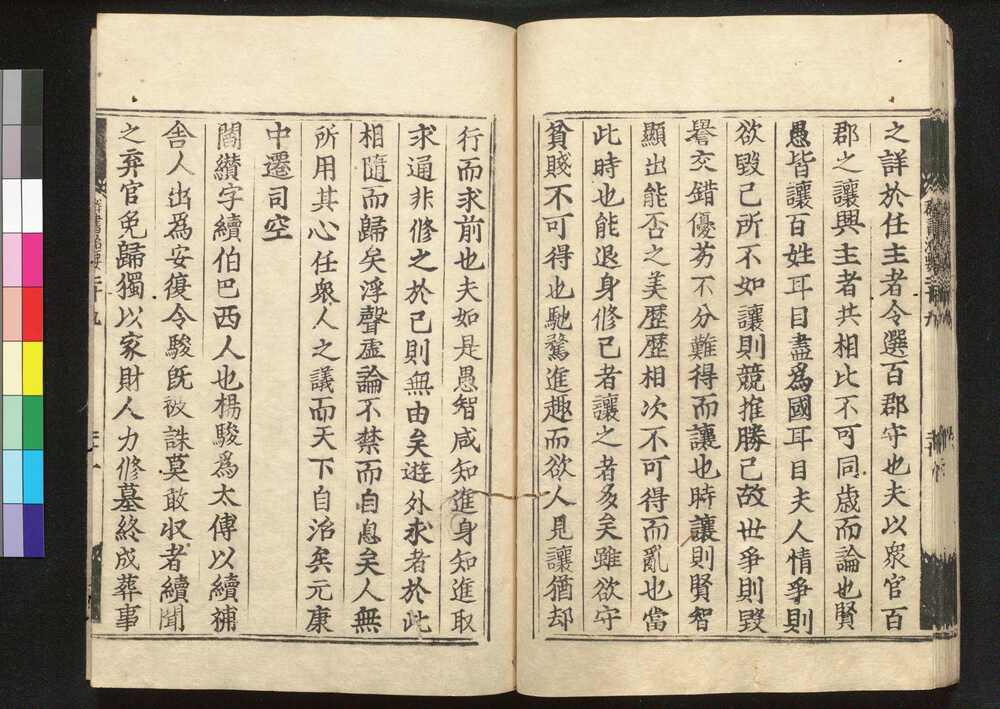 之詳於任主者令選百郡守也夫以衆官百
郡之讓與主者共相比不可同歳而論也賢
愚皆讓百姓耳目盡爲國耳目夫人情爭則
欲毀己所不如讓則競推勝己故世爭則毀
譽交錯優劣不分難得而讓也時讓則賢智
顯出能否之美歷歷相次不可得而亂也當
此時也能退身修己者讓之者多矣雖欲守
貧賤不可得也馳騖進趣而欲人見讓猶却
行而求前也夫如是愚智咸知進身知進取
求通非修之於己則無由矣遊外求者於此
相隨而歸矣浮聲虛論不禁而自息矣人無
所用其心任衆人之議而天下自治矣元康
中遷司空
閻纉字續伯巴西人也楊駿爲太傅以續補
舎人出爲安復令駿旣被誅莫敢収者續聞
之弃官免歸獨以家財人力修墓終成葬事
群書治要二十九